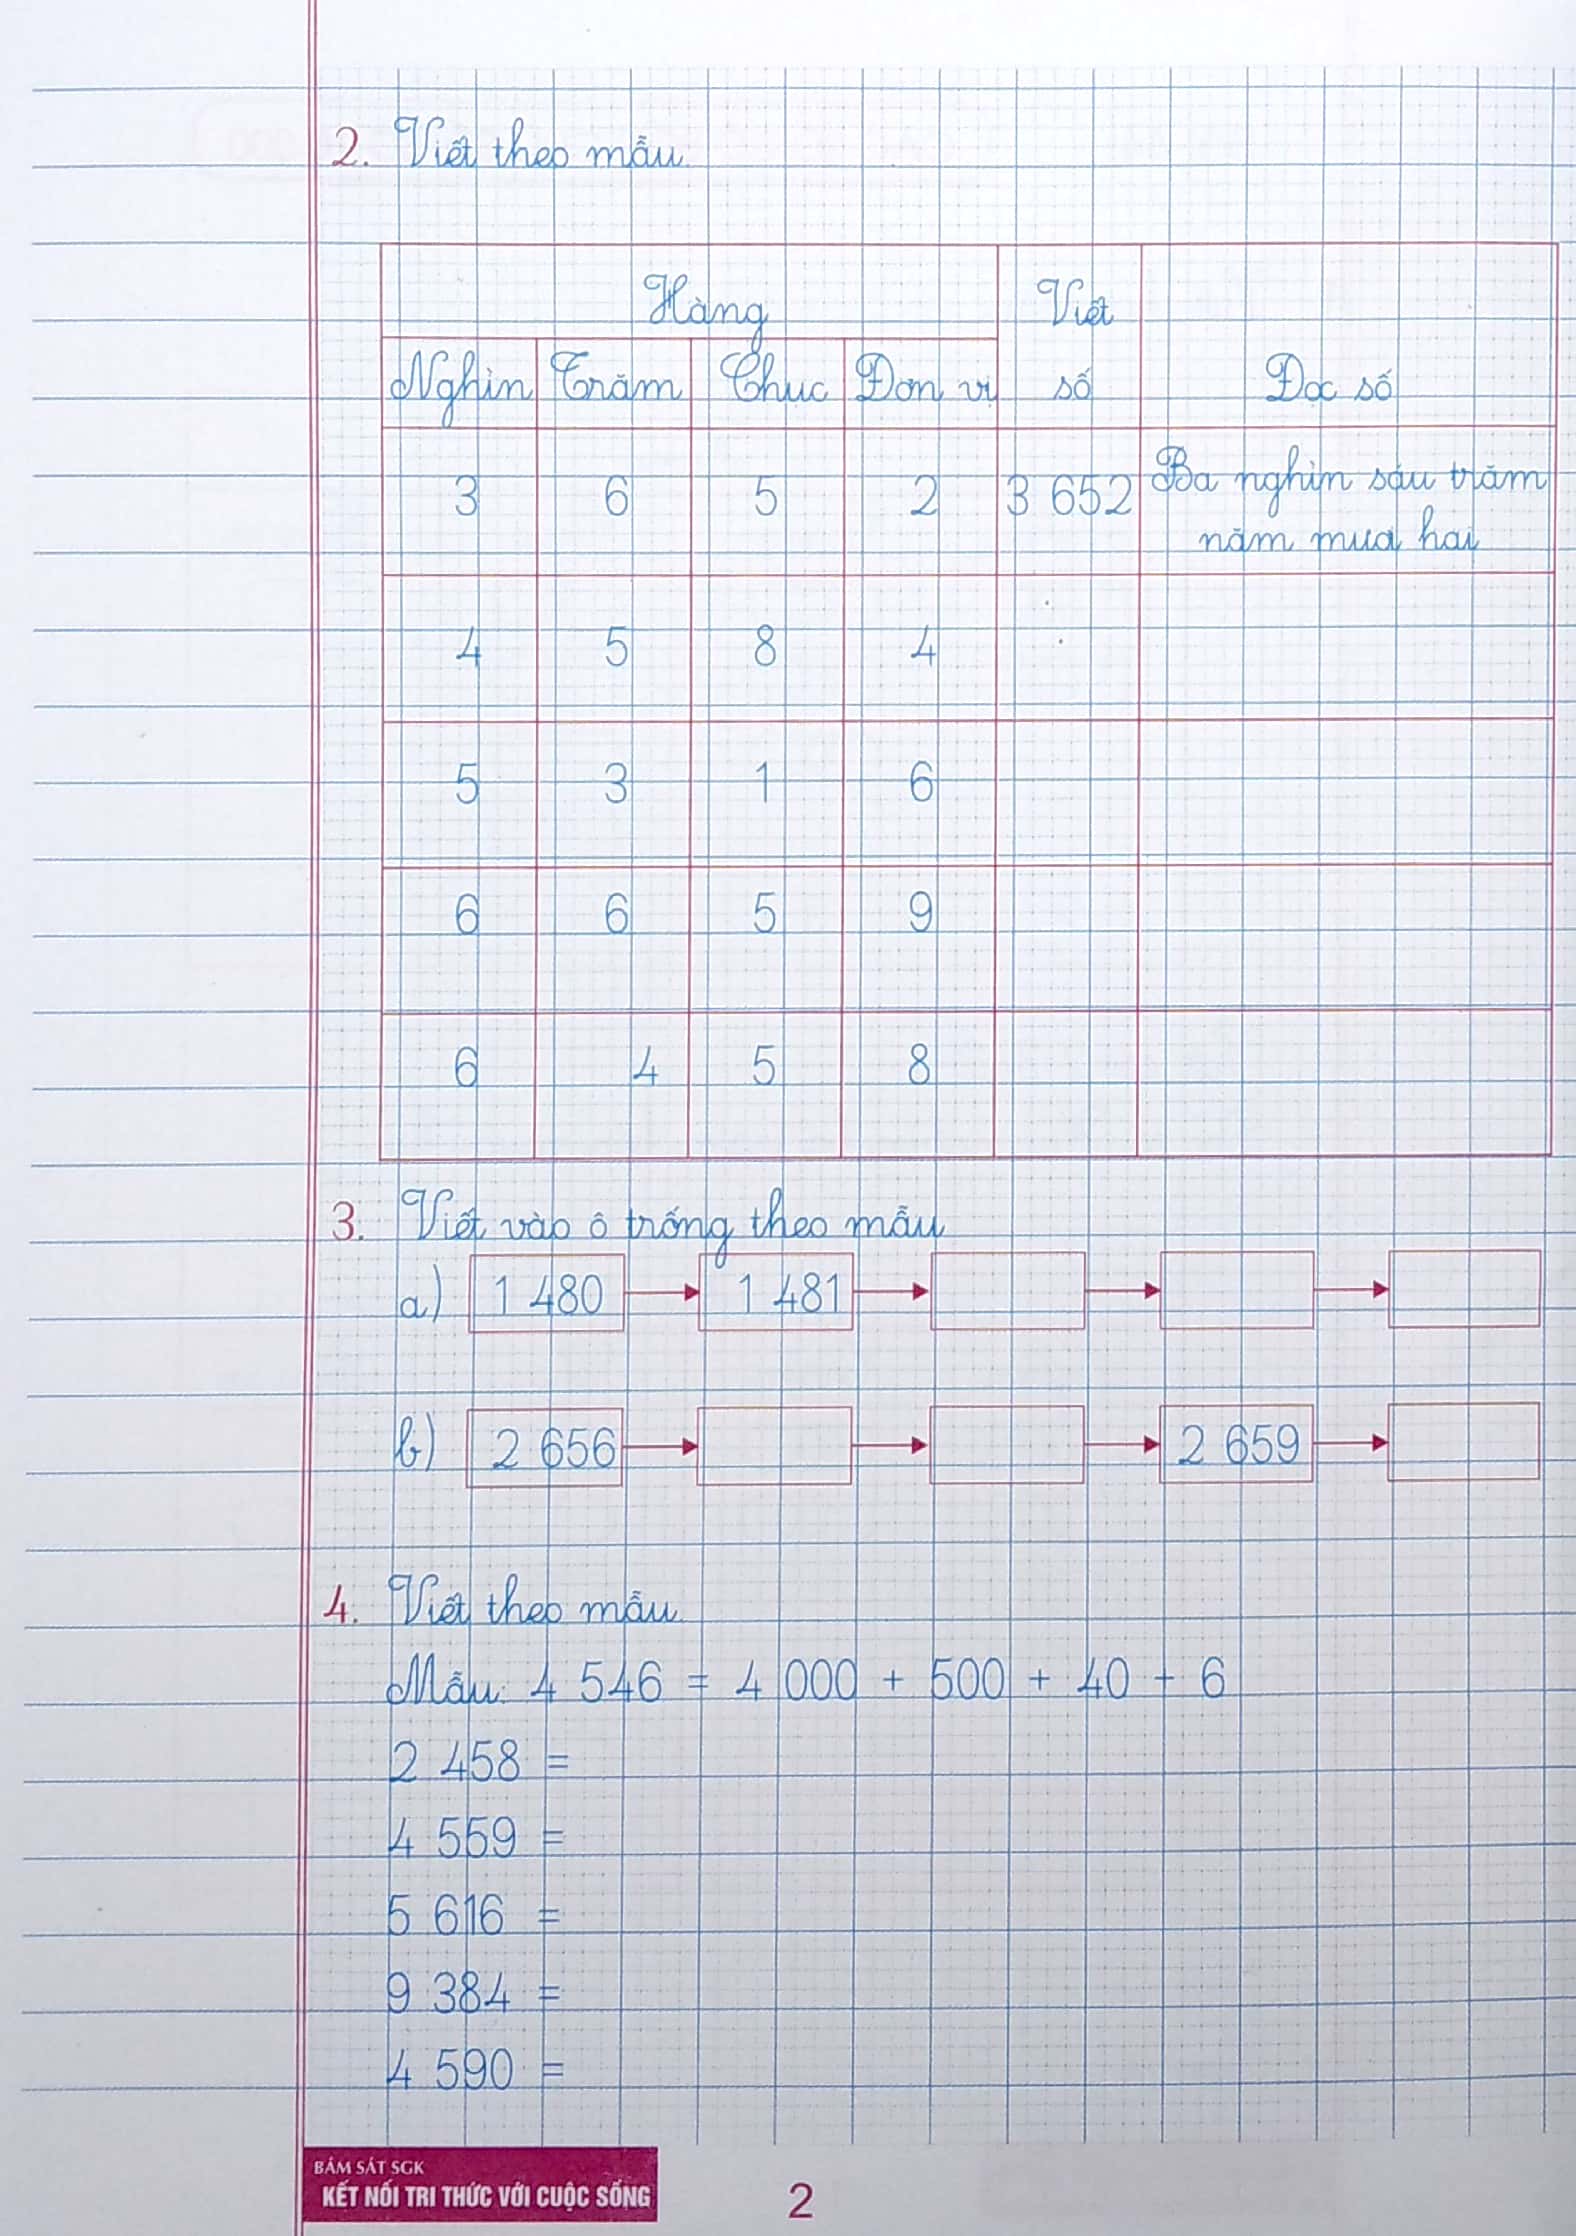 2. Viết theo mẫu
Hàng Viết
Nghìn Trăm Chục Đơn vị số Đọc số
3 6 5 2 3 652 Ba nghìn sáu trăm
năm mươi hai
4 5 8 4
5 3 1 6
6 6 5 9
6 4 5 8
3. Viết vào ô trống theo mẫu
a) 1 480 1 481
b) 2 656 2 659
4. Viết theo mẫu
Mẫu: 4 546 = 4 000 + 500 + 40 + 6
2 458 =
4 559 =
5 616 =
9 384 =
4 590 =
BÁM SÁT SGK
KẾT NỐI TRI THỨC VỚI CUỘC SỐNG
2